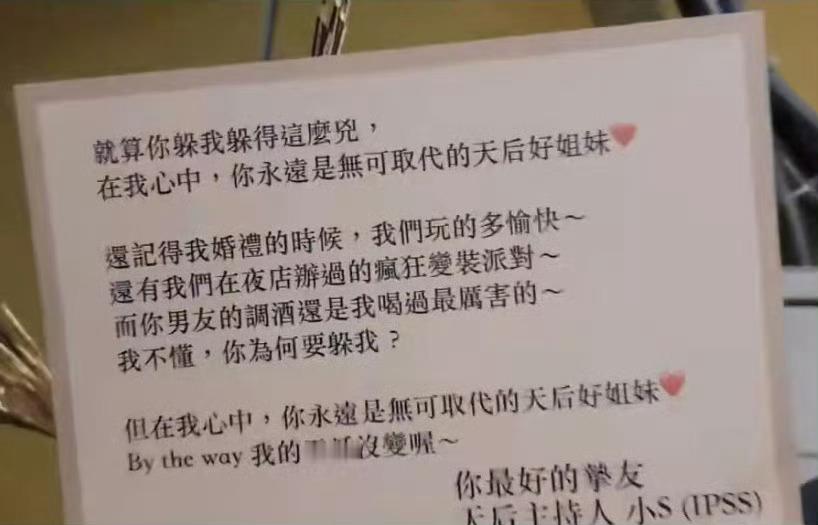 就算你躲我躲得這麼兇，
在我心中，你永遠是無可取代的天后好姐妹❤
還記得我婚禮的時候，我們玩的多愉快～
還有我們在夜店辦過的瘋狂變裝派對～
而你男友的調酒還是我喝過最厲害的～
我不懂，你為何要躲我？
但在我心中，你永遠是無可取代的天后好姐妹❤
By the way 我的沒變喔～
你最好的摯友
天后主持人 小S (IPSS)